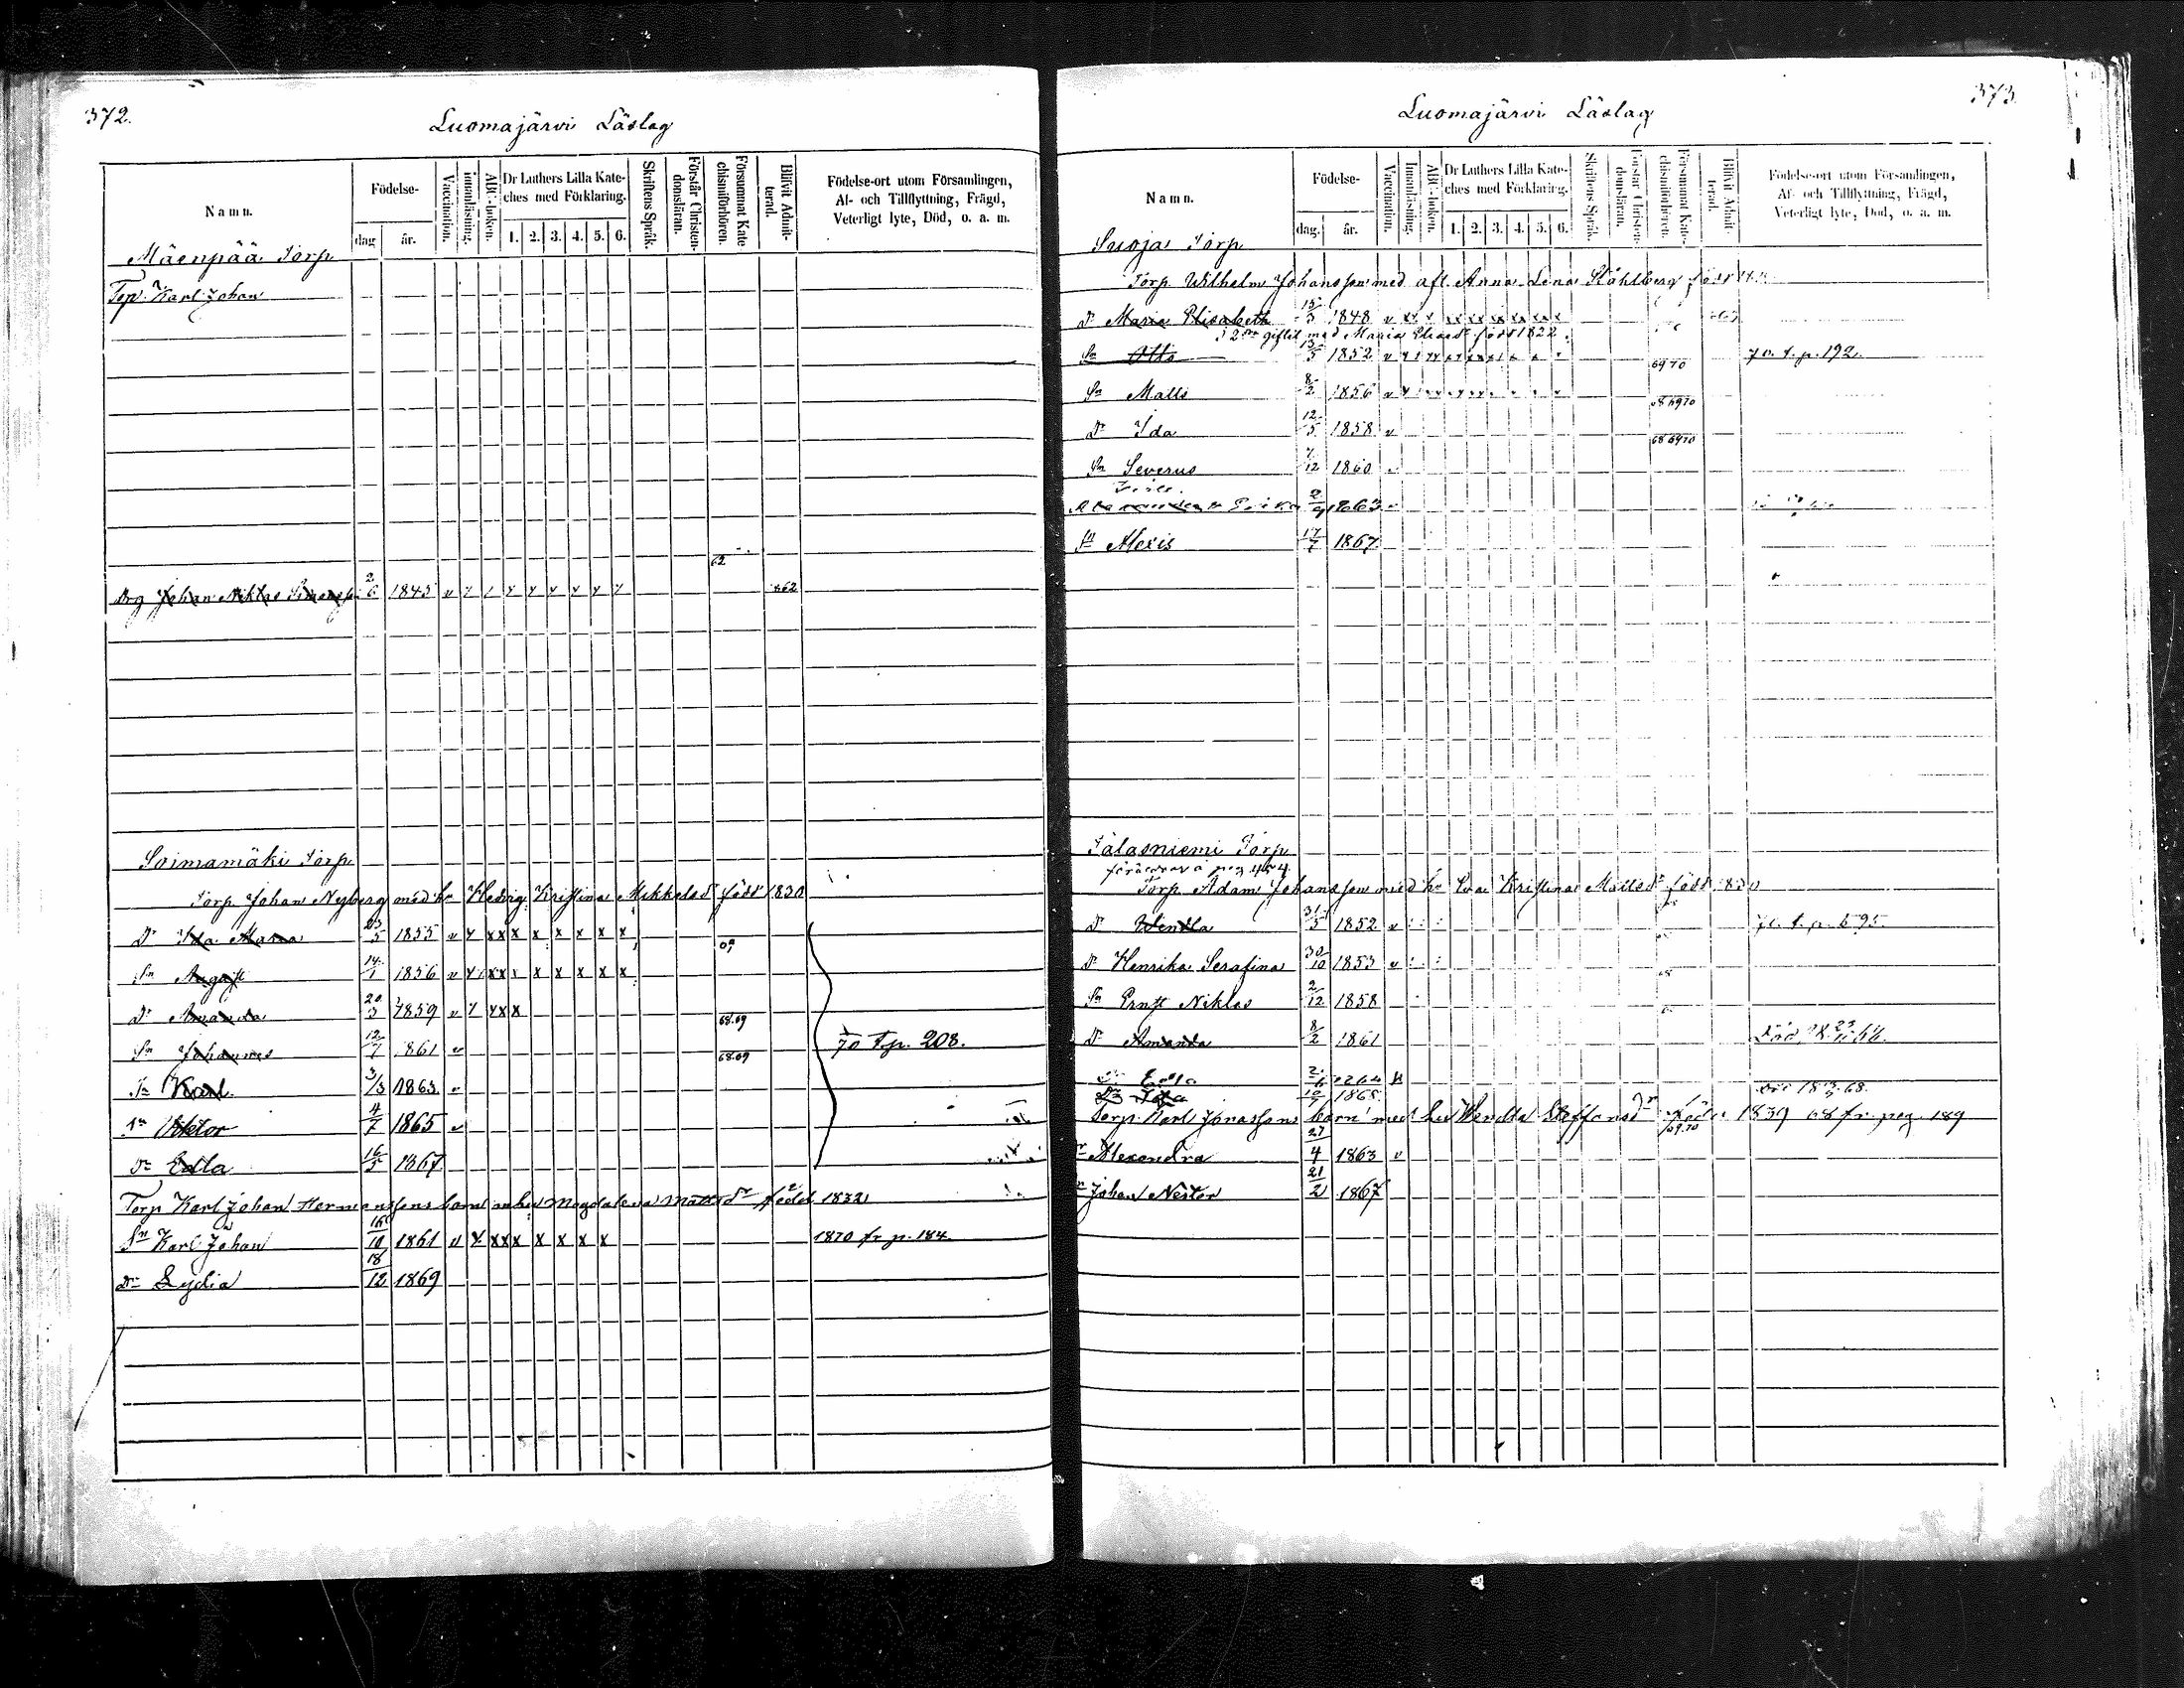 372.
Luomajärvi Läslag
Namn.
Födelse-
dag
år.
Vaccination.
Innanläsning.
ABC-boken.
Dr Luthers Lilla Kate-
ches med Förklaring.
1. 2. 3. 4. 5. 6.
Skriftens Språk.
Förstår Christen-
domsläran.
Försummat Kate-
chismiförhören.
Blifvit Admit-
terad.
Födelse-ort utom Församlingen,
Af- och Tillflyttning, Frägd,
Veterligt lyte, Död, o. a. m.
Mäenpää Torp
Karl Johan
62
Drg Johan Niklas 2/6 1845 v 862
Soimamäki Torp
Torp Johan Nyberg med h. Hedvig Kristina Mikkelsd född 1830
Dr Ida Maria 23/5 1855 v x x x x x x x x
Sn August 14/1 1856 v x x x x x x x
Dr Amanda 20/3 1859 v x x 68.69
Sn Johannes 12/7 1861 v 68.69 70 t p. 208.
Sn Karl 3/3 1863 v
Sn Viktor 4/7 1865 v
Dr Edla 16/5 1867
Torp Karl Johan Hermanssons barn Magdalena Mattsdr född 1832
Sn Karl Johan 16/10 1861 v x x x x x x x 1870 fr p. 184.
Dr Lydia 18/12 1869
373.
Luomajärvi Läslag
Namn.
Födelse-
dag.
år.
Vaccination.
Innanläsning.
ABC-boken.
Dr Luthers Lilla Kate-
ches med Förklaring.
1. 2. 3. 4. 5. 6.
Skriftens Språk.
Förstår Christen-
domsläran.
Försummat Kate-
chismiförhören.
Blifvit Admit-
terad.
Födelse-ort utom Församlingen,
Af- och Tillflyttning, Frägd,
Veterligt lyte, Död, o. a. m.
Suoja Torp
Torp Wilhelm Johansson med afl. Anna Lena Ståhlberg född
Dr Maria Elisabeth 15/3 1848 v x x x x x x x x
giftet med Maria Eliasd född 1822.
Sn Otto 13/5 1852 v 69 70 70. t. p. 192.
Sn Matts 8/2 1856 v 68 6970
Dr Ida 12/5 1858 v 68 6970
Sn Severus 7/12 1860
Alexandra Erika 2/9 1863
Sn Alexis 17/7 1867
Salasniemi Torp
pag 454
Torp Adam Johansson med h. Eva Kristina Mattsd född
Dr Wendla 31/5 1852 v 70. t. p. 595.
Dr Henrika Serafina 30/10 1853 v 68
Sn Ernst Niklas 2/12 1858
Dr Amanda 8/2 1861 Död
Dr Edla
Ida 1868
Torp Karl Jonassons barn med hu Wendla Steffansdr född 1839 68 fr. pag. 189
69.70
Alexandra 27/4 1863 v
Johan Nestor 21/2 1867